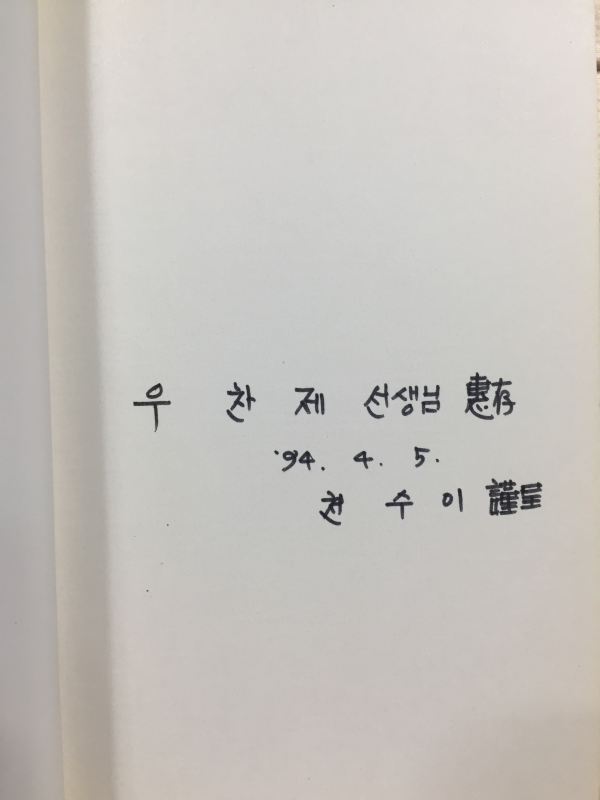 우 찬 제 선생님 惠存
'94. 4. 5.
천 수 이 謹呈